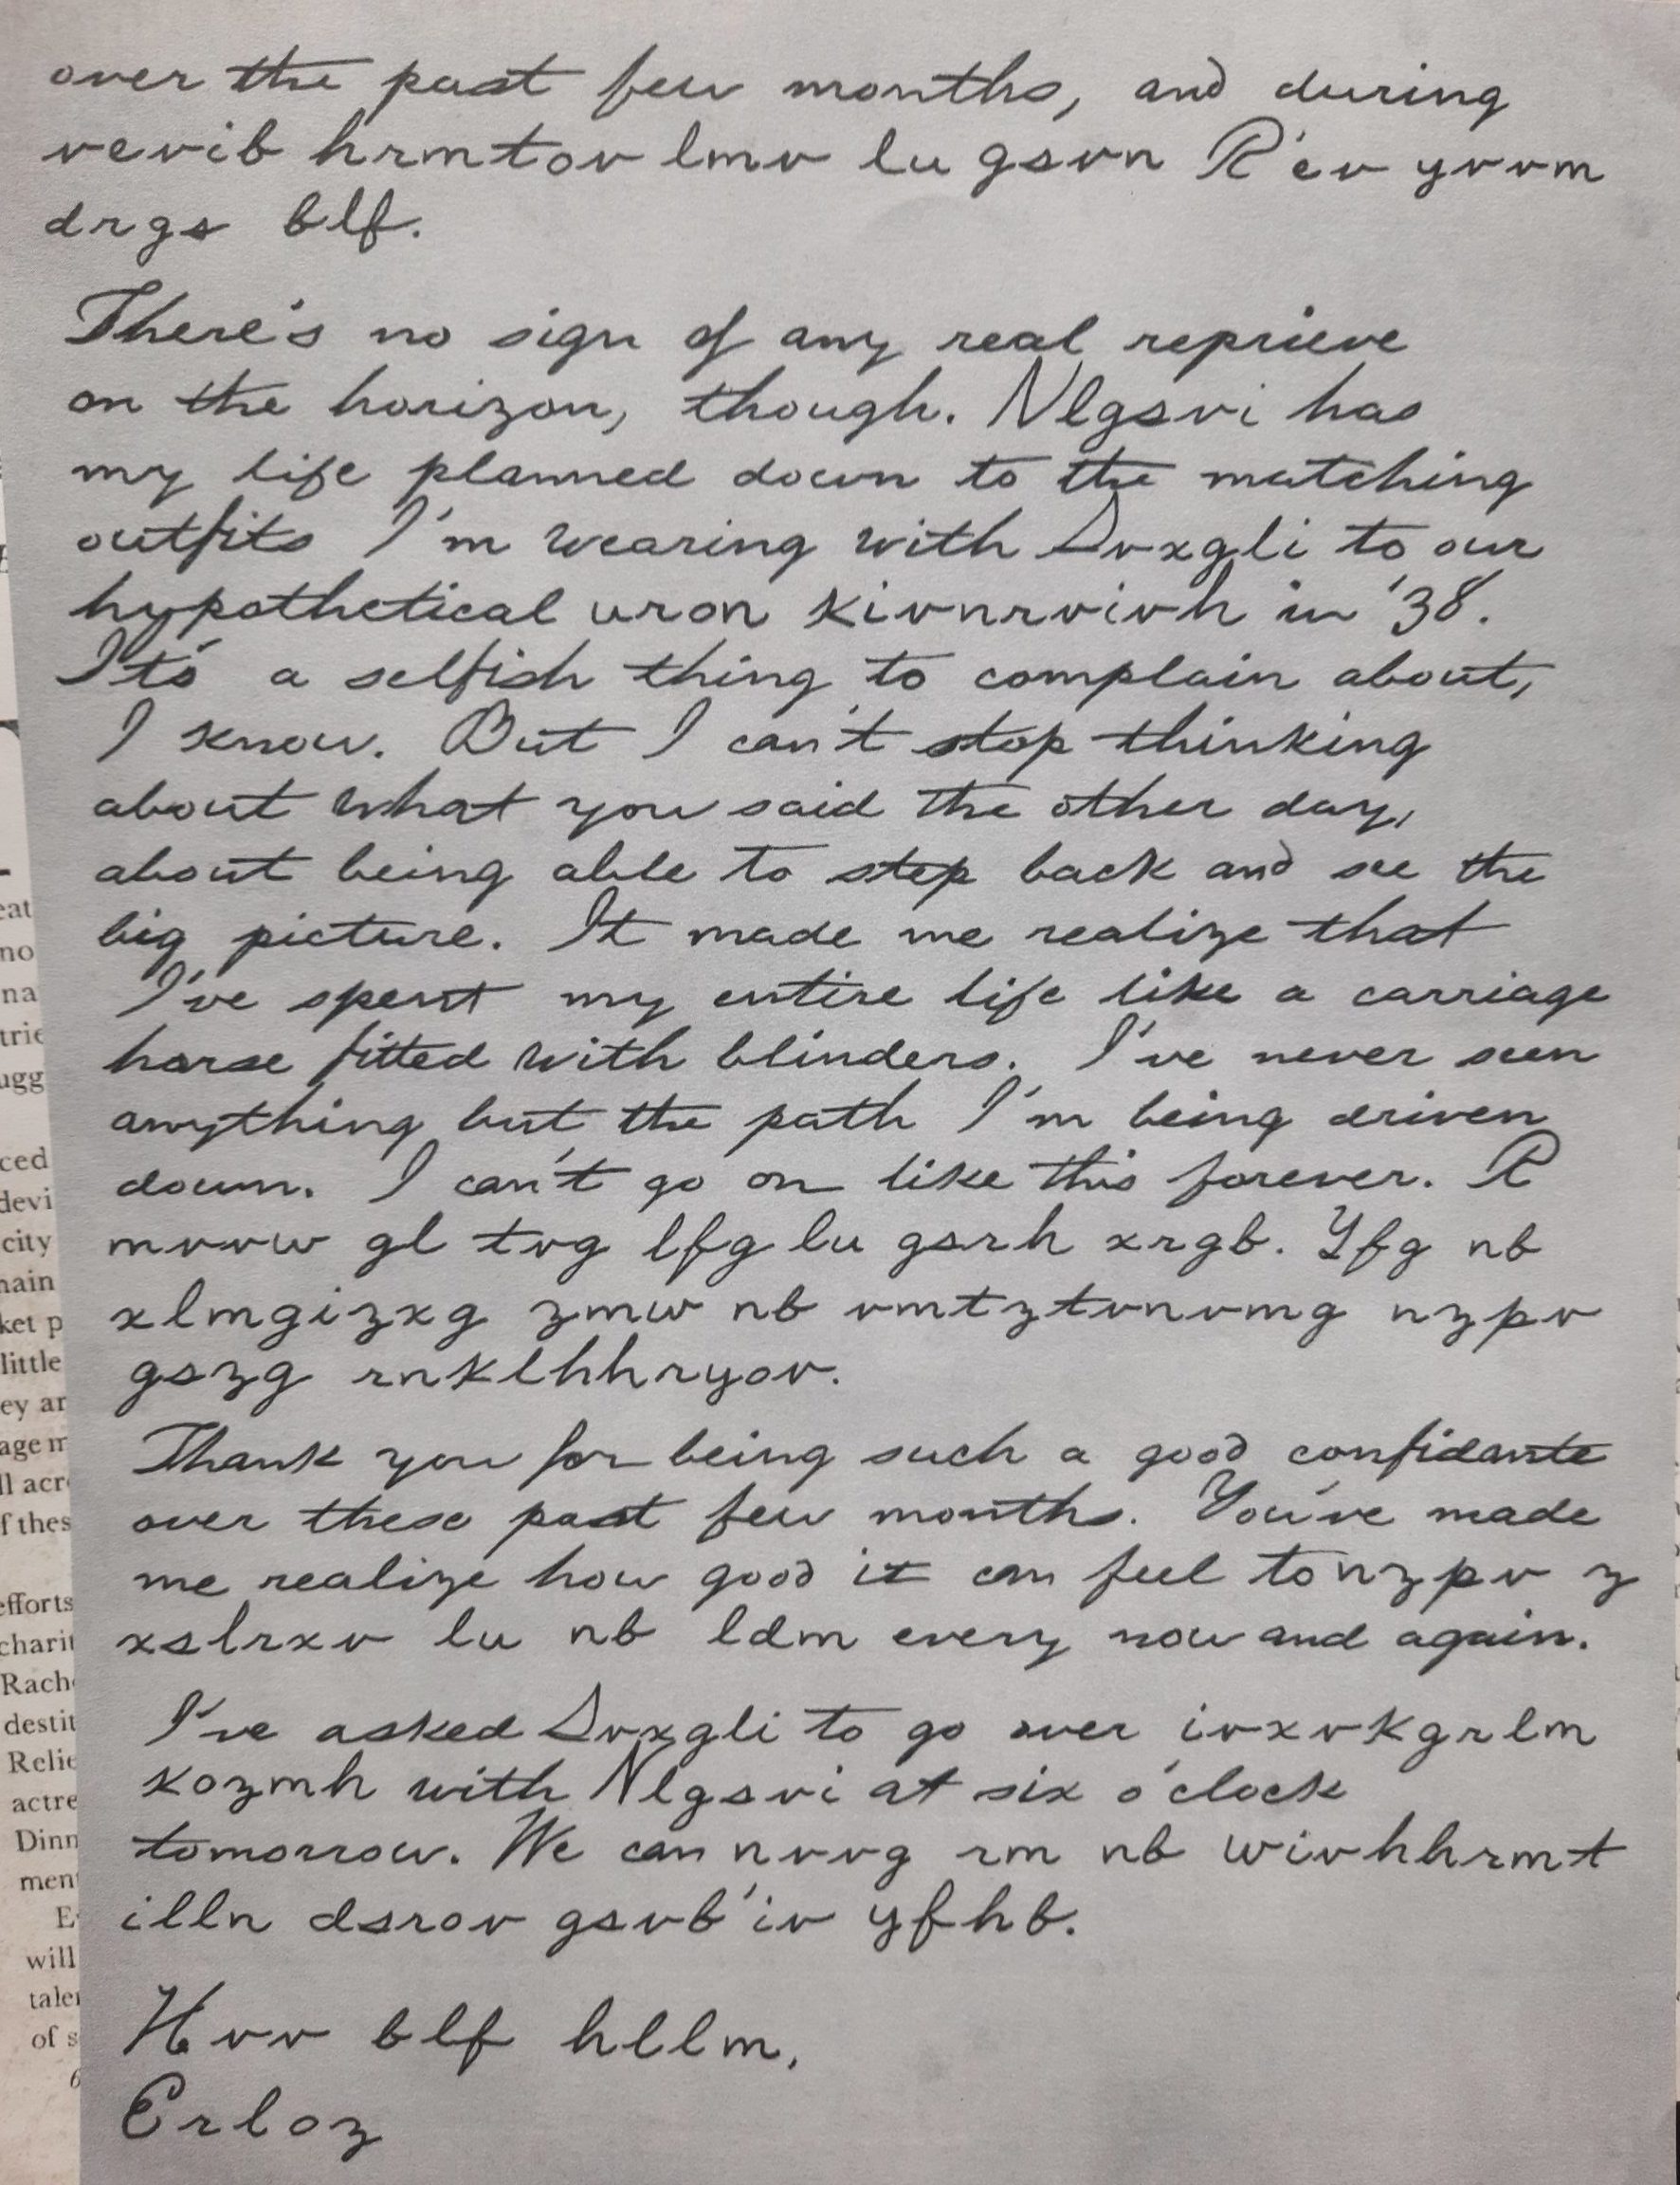 over the past few months, and during
vevib hrmtov lmv lu gsvn R'ev yvvm
drgs blf.
There's no sign of any real reprieve
on the horizon, though. Nlgsvi has
my life planned down to the matching
outfits I'm wearing with Svxgli to our
hypothetical uron kivnrvivh in '38.
It's a selfish thing to complain about,
I know. But I can't stop thinking
about what you said the other day,
about being able to step back and see the
big picture. It made me realize that
I've spent my entire life like a carriage
horse fitted with blinders. I've never seen
anything but the path I'm being driven
down. I can't go on like this forever. R
mvvw gl tvg lfg lu gsrh xrgb. Yfg nb
xlmgizxg zmw nb vmtztvnvmg nzpv
gszg rnklhhryov.
Thank you for being such a good confidante
over these past few months. You've made
me realize how good it can feel to nzpv z
xslrxv lu nb ldm every now and again.
I've asked Svxgli to go over ivxvkgrlm
kozmh with Nlgsvi at six o'clock
tomorrow. We can nvvg rm nb wivhhrmt
illn dsrov gsvb'iv yfhb.
Hvv blf hllm,
Erloz
eat
no
na
ugg
ced
devi
city
ket p
little
ey ar
ll acr
f thes
efforts
charit
Rach
destit
Relie
actre
Dinn
men
will
of s